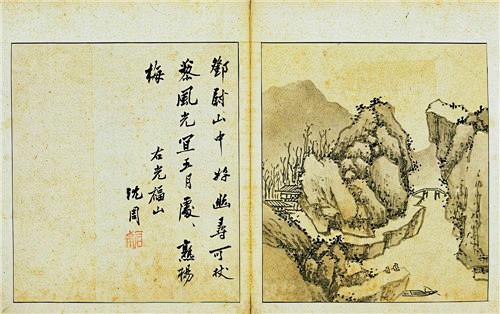 鄧尉山中好幽尋可杖
藜風光宜五月處、熟楊
梅
右光福山
沈周